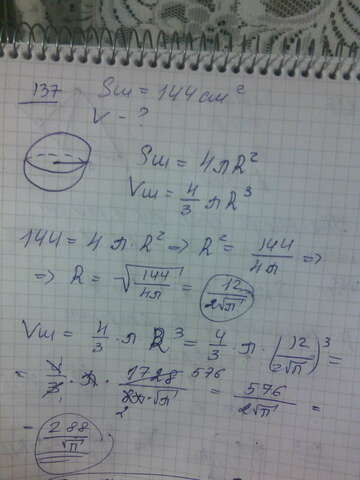 137 Sш = 144 см²
V - ?
Sш = 4πR²
Vш = 4/3 πR³
144 = 4π·R² => R² = 144/4π =>
=> R = √(144/4π) = 12/2√π
Vш = 4/3 · π R³ = 4/3 · π · (12/2√π)³ =
= 4/3 · π · 1728/8π·√π 576 2 = 576/2√π =
= 288/√π.